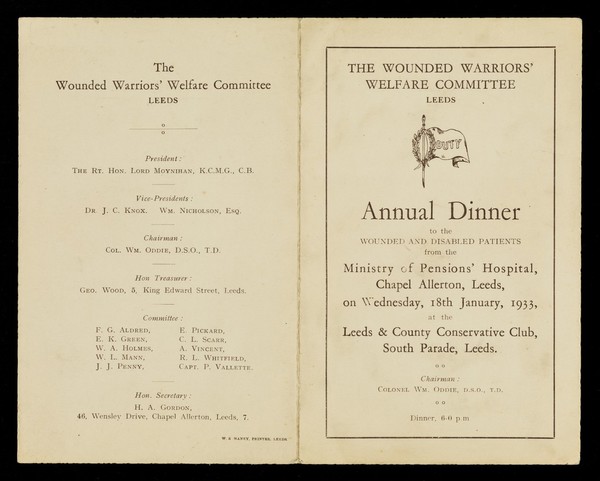 The
Wounded Warriors' Welfare Committee
LEEDS
President :
THE RT. HON. LORD MOYNIHAN, K.C.M.G., C.B.
Vice-Presidents :
DR. J. C. KNOX. WM. NICHOLSON, ESQ.
Chairman :
COL. WM. ODDIE, D.S.O., T.D.
Hon Treasurer :
GEO. WOOD, 5, King Edward Street, Leeds.
Committee :
F. G. ALDRED, E. PICKARD,
E. K. GREEN, C. L. SCARR,
W. A. HOLMES, A. VINCENT,
W. L. MANN, R. L. WHITFIELD,
J. J. PENNY, CAPT. P. VALLETTE.
Hon. Secretary :
H. A. GORDON,
46, Wensley Drive, Chapel Allerton, Leeds, 7.
PRINTER, LEEDS.
THE WOUNDED WARRIORS'
WELFARE COMMITTEE
LEEDS
DUTY
Annual Dinner
to the
WOUNDED AND DISABLED PATIENTS
from the
Ministry of Pensions' Hospital,
Chapel Allerton, Leeds,
on Wednesday, 18th January, 1933,
at the
Leeds & County Conservative Club,
South Parade, Leeds.
Chairman :
COLONEL WM. ODDIE, D.S.O., T.D.
Dinner, 6-0 p.m